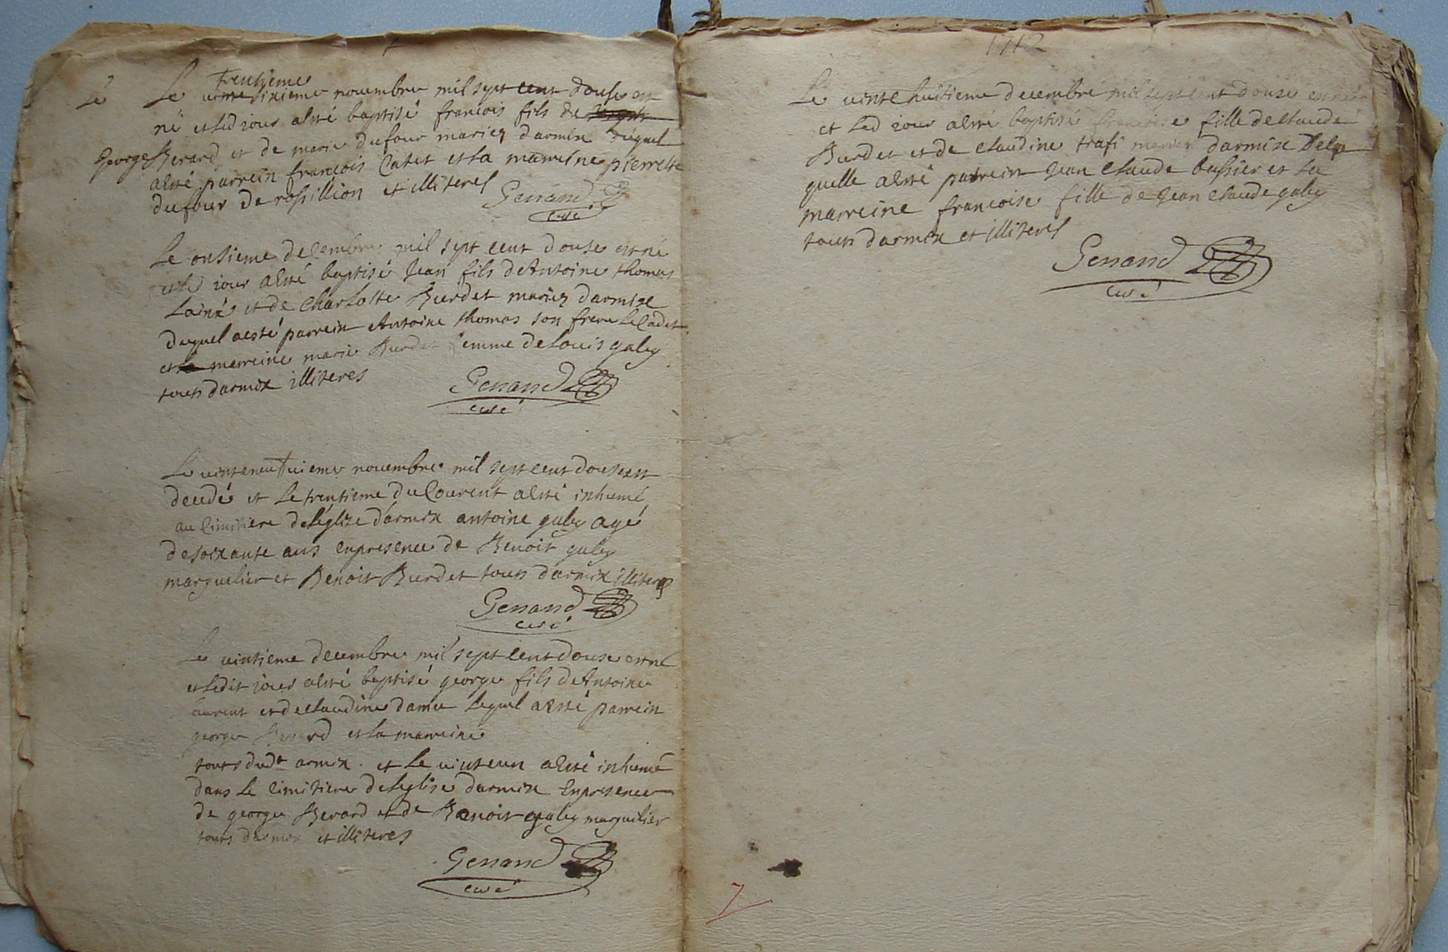 Le Le trentieme
vinte sixieme novembre mil sept cent douse est
né et led jour a esté baptisé francois fils de
George Berard et de marie dufour mariez darmix duquel
a esté parrein francois Catet et la marreine pierrette
dufour de rossillion et illiteres Genand
curé
Le onsieme decembre mil sept cent douse est né
et le jour a esté baptisé Jean fils de Antoine thomas
Lainé et de Charlotte Burdet mariez darmixe
duquel a esté parrein Antoine thomas son frere le Cadet
et la marreine marie Burdet femme de Louis galey
touts darmix illiteres Genand
curé
Le vinteneufvieme novembre mil sept cent douse est
decedé et le trentieme du Courent a esté inhumé
au Cimitiere de l'église d'armix antoine galey agé
de soixante ans en presence de Benoit galey
marguelier et Benoit Burdet touts darmix illiteres
Genand
curé
Le vintieme decembre mil sept cent douse est né
et ledit jour a esté baptisé george fils de Antoine
laurent et de Claudine dame lequel a esté parrein
george Berard et la marreine
touts dudt armix . et le vinteun a esté inhumé
dans le cimitiere de l'eglise darmix En presence
de george Berard et de Benoit galey marguilier
touts darmix et illiteres
Genand
curé
1712
Le vintehuitieme decembre mil sept cent douse est née
et led jour a esté baptisé francoise fille de Claude
Burdet et de Claudine trafi mariez darmix de la
quelle a esté parrein Jean Claude bussier et la
marreine francoise fille de Jean Claude galey
touts darmix et illiteres
Genand
curé
7